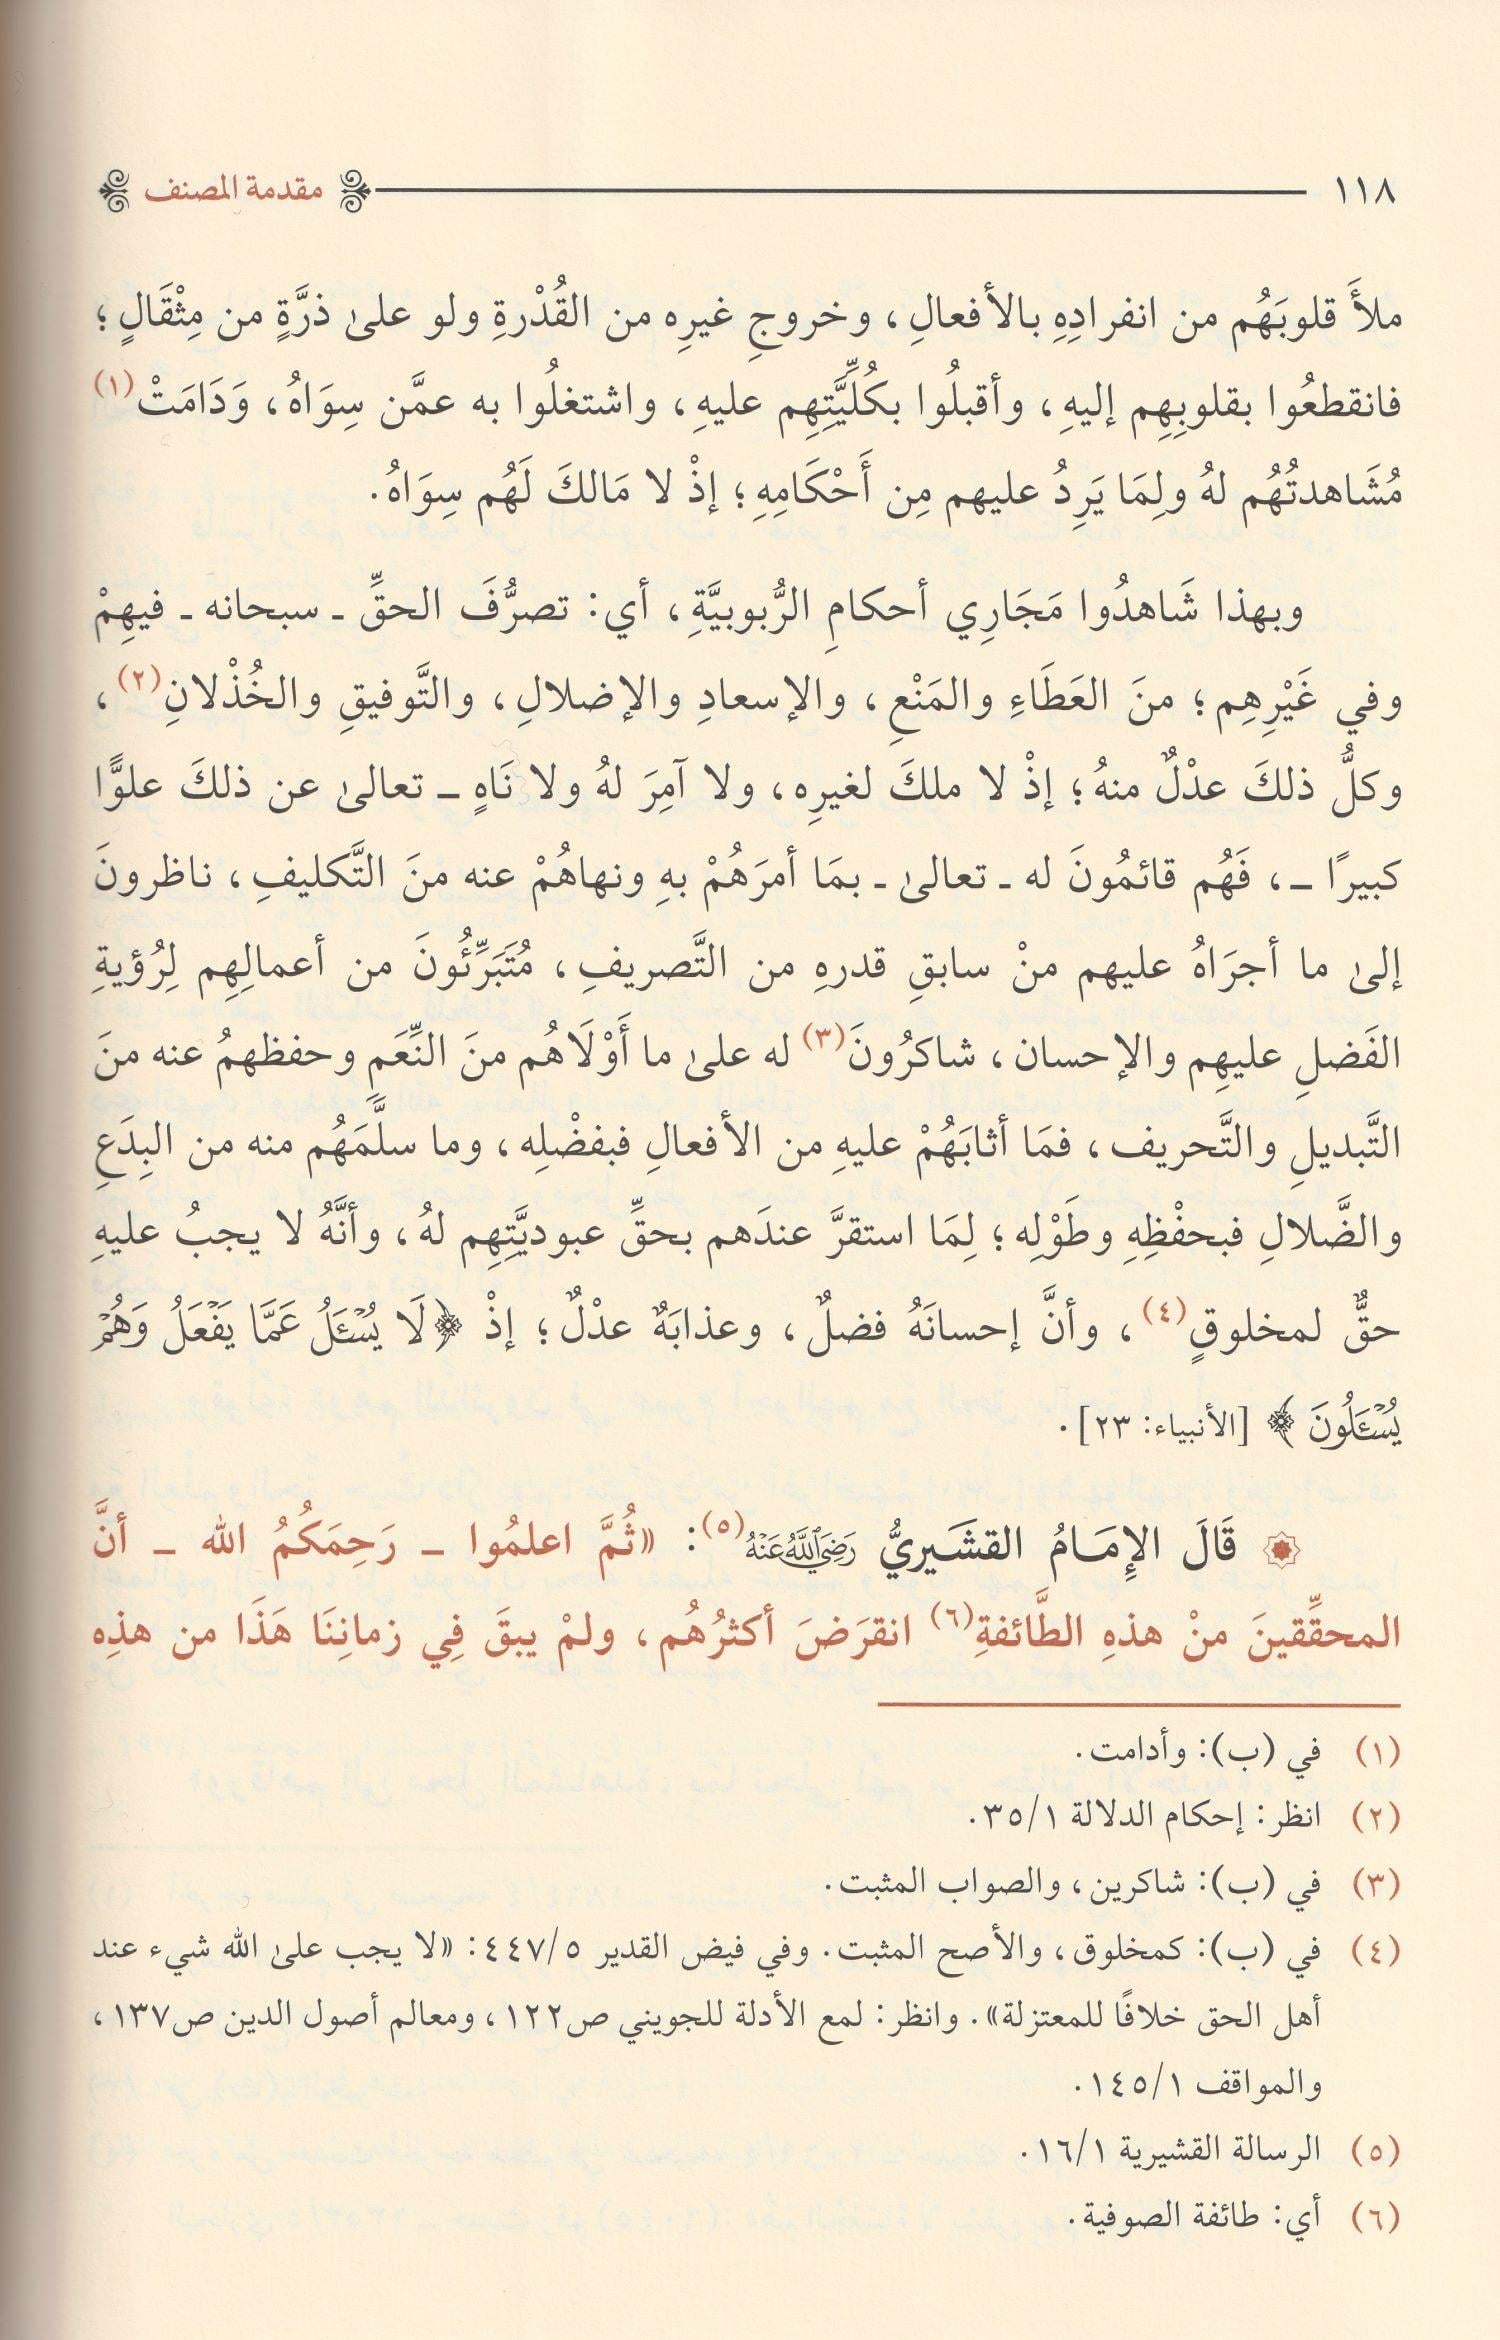 ١١٨ مقدمة المصنف
ملأَ قلوبَهُم من انفرادِهِ بالأفعالِ، وخروجِ غيرِه من القُدْرةِ ولو علىٰ ذرَّةٍ من مِثْقَالٍ؛
فانقطعُوا بقلوبِهِم إليهِ، وأقبلُوا بكُلِّيَّتِهِم عليهِ، واشتغلُوا به عمَّن سِوَاهُ، وَدَامَتْ(١)
مُشَاهدتُهُم لهُ ولِمَا يَرِدُ عليهم مِن أَحْكَامِهِ؛ إذْ لا مَالكَ لَهُم سِوَاهُ.
وبهذا شَاهدُوا مَجَارِي أحكامِ الرُّبوبيَّةِ، أي: تصرُّفَ الحقِّ ـ سبحانه ـ فيهِمْ
وفي غَيْرِهِم؛ منَ العَطَاءِ والمَنْعِ، والإسعادِ والإضلالِ، والتَّوفيقِ والخُذْلانِ(٢)،
وكلُّ ذلكَ عدْلٌ منهُ؛ إذْ لا ملكَ لغيرِه، ولا آمِرَ لهُ ولا نَاهٍ ـ تعالىٰ عن ذلكَ علوًّا
كبيرًا ـ، فَهُم قائمُونَ له ـ تعالىٰ ـ بمَا أمرَهُمْ بهِ ونهاهُمْ عنه منَ التَّكليفِ، ناظرونَ
إلىٰ ما أجرَاهُ عليهم منْ سابقِ قدرهِ من التَّصريفِ، مُتَبَرِّئُونَ من أعمالِهِم لِرُؤيةِ
الفَضلِ عليهِم والإحسان، شاكرُونَ(٣) له علىٰ ما أَوْلَاهُم منَ النِّعَمِ وحفظهمُ عنه منَ
التَّبديلِ والتَّحريف، فمَا أثابَهُمْ عليهِ من الأفعالِ فبفضْلِه، وما سلَّمَهُم منه من البِدَعِ
والضَّلالِ فبحفْظِهِ وطَوْلِه؛ لِمَا استقرَّ عندَهم بحقِّ عبوديَّتِهِم لهُ، وأنَّهُ لا يجبُ عليهِ
حقٌّ لمخلوقٍ(٤)، وأنَّ إحسانَهُ فضلٌ، وعذابَهُ عدْلٌ؛ إذْ ﴿لَا يُسْـَٔلُ عَمَّا يَفْعَلُ وَهُمْ
يُسْـَٔلُونَ﴾ [الأنبياء: ٢٣].
۞ قَالَ الإِمَامُ القشَيريُّ رَضِيَ اللَّهُ عَنْهُ(٥): «ثُمَّ اعلمُوا ـ رَحِمَكُمُ الله ـ أنَّ
المحقِّقينَ منْ هذهِ الطَّائفةِ(٦) انقرَضَ أكثرُهُم، ولمْ يبقَ فِي زمانِنَا هَذَا من هذِه
(١) في (ب): وأدامت.
(٢) انظر: إحكام الدلالة ٣٥/١.
(٣) في (ب): شاكرين، والصواب المثبت.
(٤) في (ب): كمخلوق، والأصح المثبت. وفي فيض القدير ٤٤٧/٥: «لا يجب علىٰ الله شيء عند
أهل الحق خلافًا للمعتزلة». وانظر: لمع الأدلة للجويني ص١٢٢، ومعالم أصول الدين ص١٣٧،
والمواقف ١٤٥/١.
(٥) الرسالة القشيرية ١٦/١.
(٦) أي: طائفة الصوفية.